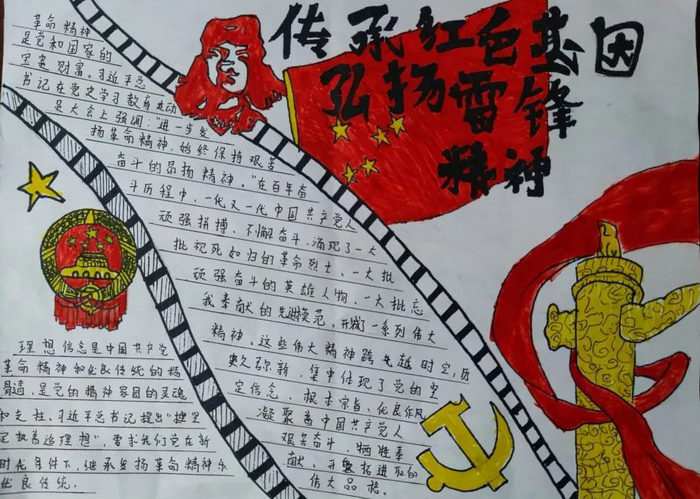 传承红色基因
弘扬雷锋
精神
革命精神
是党和国家的
宝贵财富，习近平总
书记在党史学习教育动
员大会上强调："进一步发
扬革命精神，始终保持艰苦
奋斗的昂扬精神。"在百年奋
斗历程中，一代又一代中国共产党人
顽强拼搏、不懈奋斗，涌现了一大
批视死如归的革命烈士、一大批
顽强奋斗的英雄人物、一大批忘
我奉献的先进模范，形成一系列伟大
精神，这些伟大精神跨越时空，历
久弥新，集中体现了党的坚
定信念、根本宗旨、优良作风
凝聚着中国共产党人
艰苦奋斗、牺牲奉
献、开拓进取的
伟大品格。
理想信念是中国共产党
革命精神和优良传统的精
是党的精神家园的灵魂
和支柱。习近平总书记提出"
理想"，要求我们党在新
时代条件下，继承发扬革命精神和
优良传统。